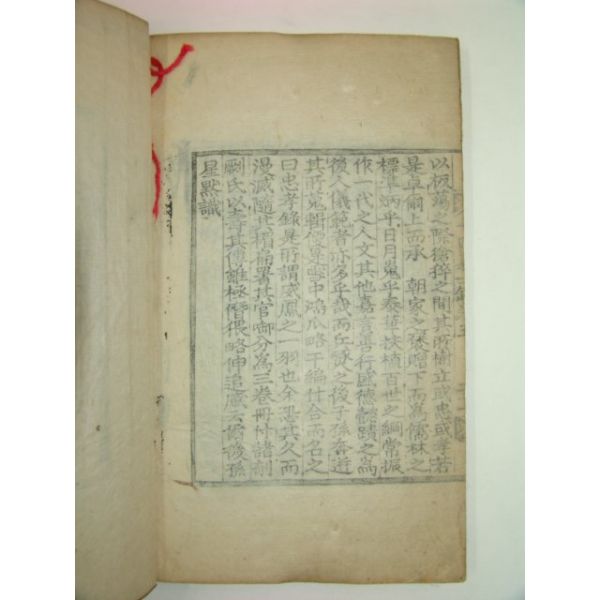 以板蕩之際傺猝之間其所樹立或忠或孝若
是卓爾上而承 朝家之褒贈下而爲儒林之
標準炳乎日月嵬乎泰華扶植百世之綱常振
作一代之人文其他嘉言善行盛德懿蹟之爲
後人儀範者亦多乎哉而兵燹之後子孫
其所蒐輯僅雪中鴻爪略干編付合而名之
曰忠孝錄是所謂威鳳之一羽也余恐其久而
漫滅隨其有徧署其官啣分爲三卷冊付諸剞
劂氏以壽其傳雖極僭猥略伸追慕云爾後孫
星默識